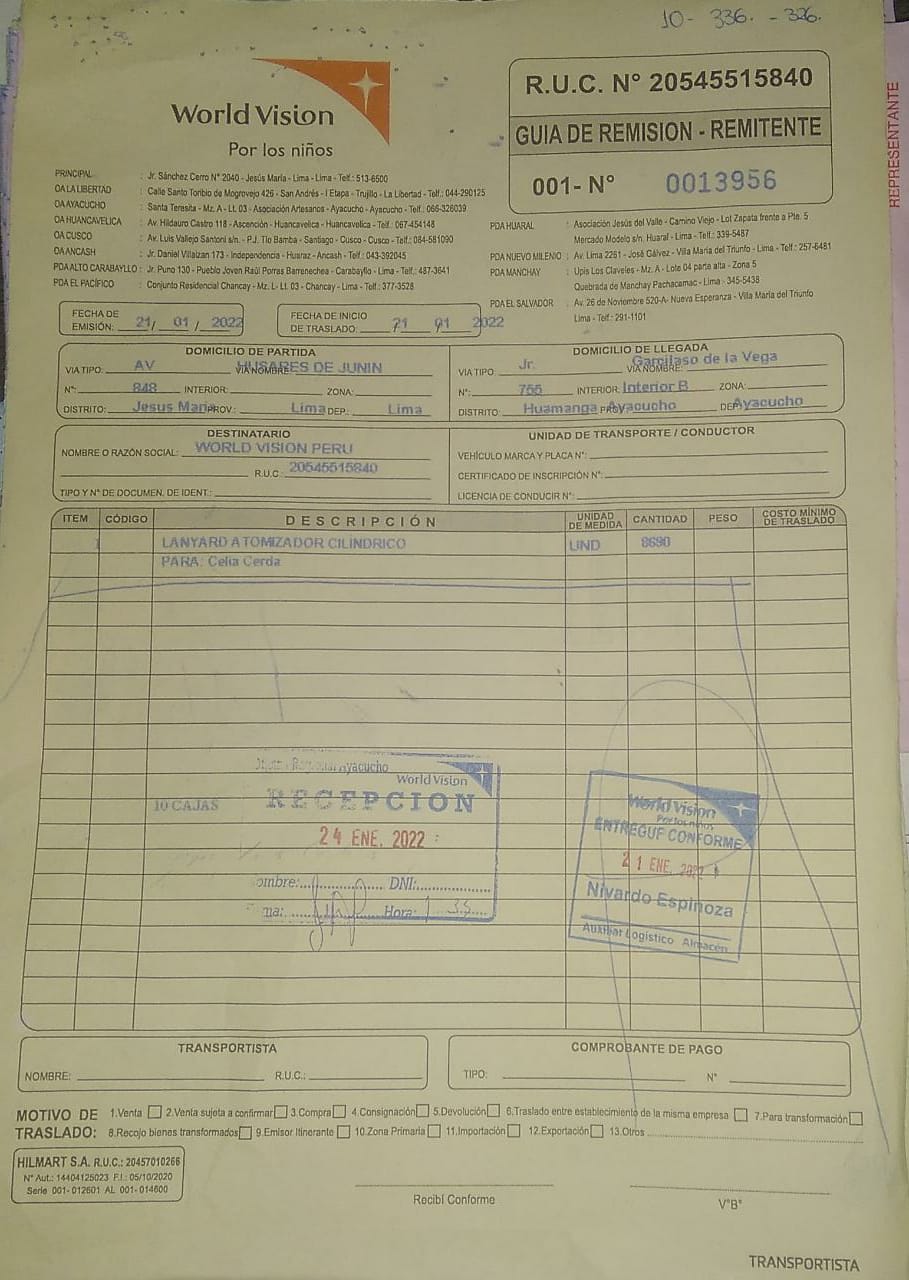 10- 336. - 326.
World Vision
Por los niños
R.U.C. N° 20545515840
GUIA DE REMISION - REMITENTE
001- N° 0013956
REPRESENTANTE
PRINCIPAL : Jr. Sánchez Cerro N° 2040 - Jesús María - Lima - Lima - Telf.: 513-6500
OA LA LIBERTAD : Calle Santo Toribio de Mogrovejo 426 - San Andrés - I Etapa - Trujillo - La Libertad - Telf.: 044-290125
OA AYACUCHO : Santa Teresita - Mz. A - Lt. 03 - Asociación Artesanos - Ayacucho - Ayacucho - Telf.: 066-326039
OA HUANCAVELICA : Av. Hildauro Castro 118 - Ascención - Huancavelica - Huancavelica - Telf.: 067-454148
OA CUSCO : Av. Luis Vallejo Santoni s/n. - P.J. Tío Bamba - Santiago - Cusco - Cusco - Telf.: 084-581090
OA ANCASH : Jr. Daniel Villaizan 173 - Independencia - Huaraz - Ancash - Telf.: 043-392045
PDA ALTO CARABAYLLO : Jr. Puno 130 - Pueblo Joven Raúl Porras Barrenechea - Carabayllo - Lima - Telf.: 487-3641
PDA EL PACÍFICO : Conjunto Residencial Chancay - Mz. L- Lt. 03 - Chancay - Lima - Telf.: 377-3528
PDA HUARAL : Asociación Jesús del Valle - Camino Viejo - Lot Zapata frente a Pte. 5
Mercado Modelo s/n. Huaral - Lima - Telf.: 339-5487
PDA NUEVO MILENIO : Av. Lima 2261 - José Gálvez - Villa María del Triunfo - Lima - Telf.: 257-6481
PDA MANCHAY : Upis Los Claveles - Mz. A - Lote 04 parte alta - Zona 5
Quebrada de Manchay Pachacamac - Lima - 345-5438
PDA EL SALVADOR : Av. 26 de Noviembre 520-A- Nueva Esperanza - Villa María del Triunfo
Lima - Telf.: 291-1101
FECHA DE EMISIÓN: 21/ 01 / 2022
FECHA DE INICIO DE TRASLADO: 21 01 2022
DOMICILIO DE PARTIDA
VIA TIPO: AV VIA NOMBRE: HUSARES DE JUNIN
N°: 848 INTERIOR: ZONA:
DISTRITO: Jesus Maria PROV.: Lima DEP.: Lima
DOMICILIO DE LLEGADA
VIA TIPO: Jr. VIA NOMBRE: Garcilaso de la Vega
N°: 755 INTERIOR: Interior B ZONA:
DISTRITO: Huamanga PROV.: Ayacucho DEP.: Ayacucho
DESTINATARIO
NOMBRE O RAZÓN SOCIAL: WORLD VISION PERU
R.U.C. 20545515840
TIPO Y N° DE DOCUMEN. DE IDENT.:
UNIDAD DE TRANSPORTE / CONDUCTOR
VEHÍCULO MARCA Y PLACA N°:
CERTIFICADO DE INSCRIPCIÓN N°:
LICENCIA DE CONDUCIR N°:
ITEM CÓDIGO DESCRIPCIÓN UNIDAD DE MEDIDA CANTIDAD PESO COSTO MÍNIMO DE TRASLADO
1 LANYARD ATOMIZADOR CILINDRICO UND 8690
PARA: Celia Cerda
10 CAJAS
Ayacucho
World Vision
RECEPCION
24 ENE. 2022
ombre: DNI:
ma: Hora: 1 33
World Vision
Por los niños
ENTREGUE CONFORME
21 ENE. 2022
Nivardo Espinoza
Auxiliar Logístico Almacén
TRANSPORTISTA
NOMBRE: R.U.C.:
COMPROBANTE DE PAGO
TIPO: N°
MOTIVO DE TRASLADO: 1.Venta 2.Venta sujeta a confirmar 3.Compra 4.Consignación 5.Devolución 6.Traslado entre establecimiento de la misma empresa 7.Para transformación
8.Recojo bienes transformados 9.Emisor Itinerante 10.Zona Primaria 11.Importación 12.Exportación 13.Otros
HILMART S.A. R.U.C.: 20457010266
N° Aut.: 14404125023 F.I.: 05/10/2020
Serie 001- 012601 AL 001- 014600
Recibí Conforme
V°B°
TRANSPORTISTA